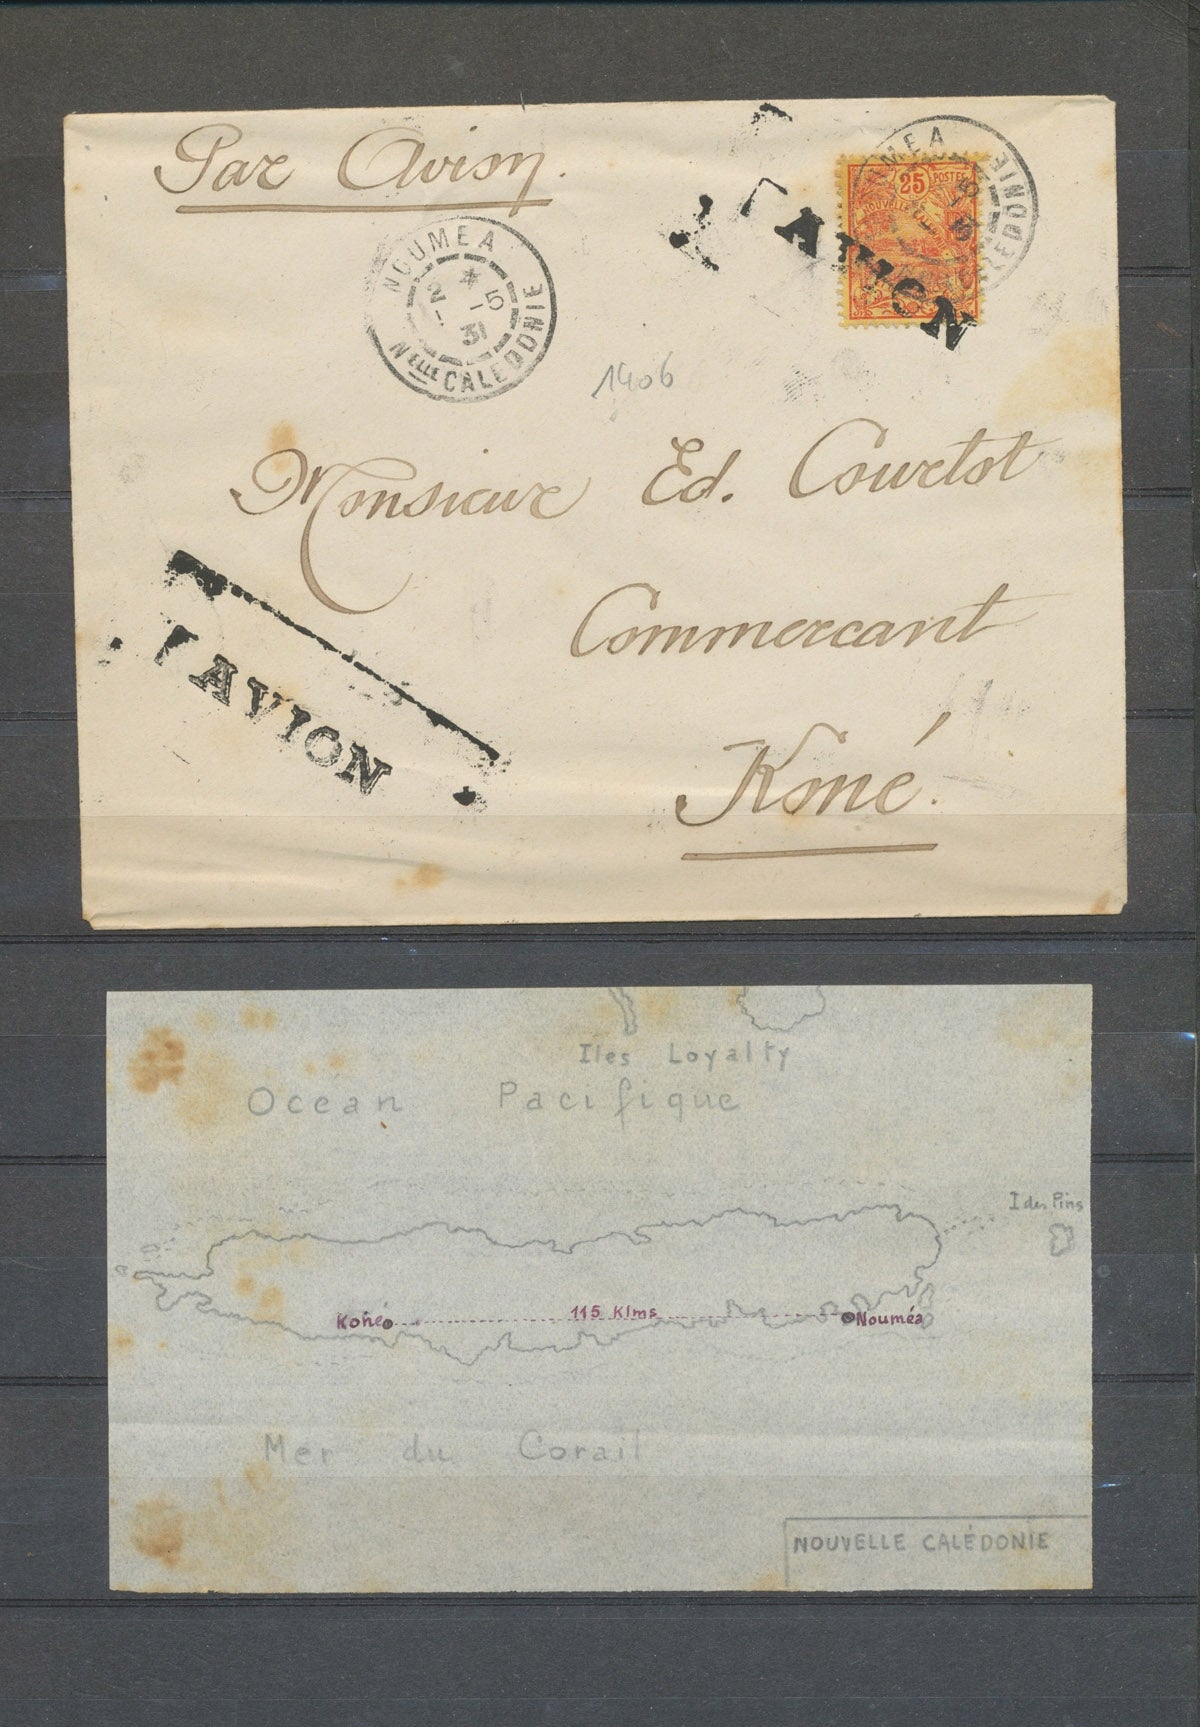 Par Avion.
25 POSTES
NOUVELLE
NOUMEA
CALEDONIE
AVION
NOUMEA
2 - 5
31
Nelle CALEDONIE
1906
Monsieur Ed. Courtot
Commercant
AVION
Koné.
Iles Loyalty
Océan Pacifique
I des Pins
Koné 115 Klms Nouméa
Mer du Corail
NOUVELLE CALÉDONIE